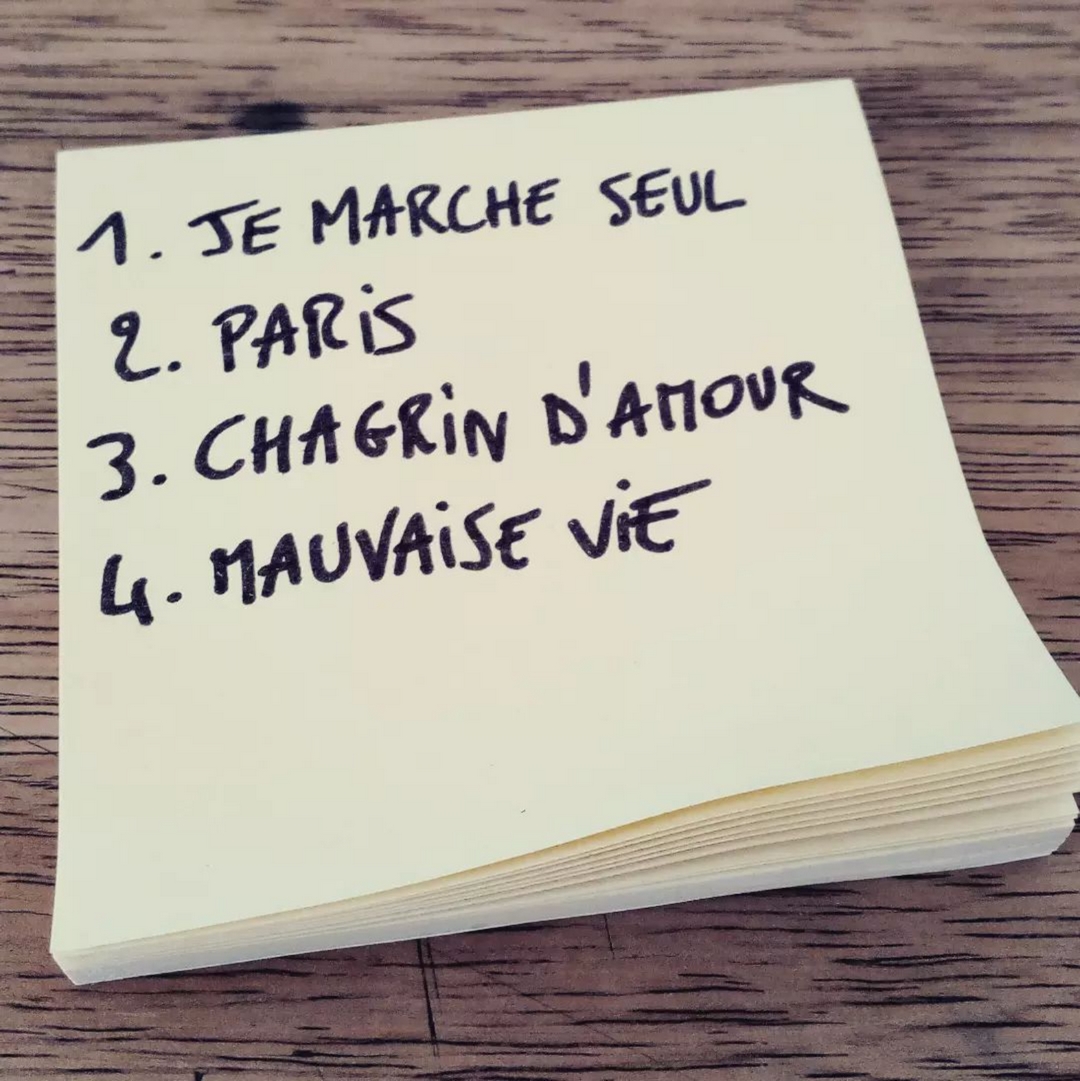 1. JE MARCHE SEUL
2. PARiS
3. CHAGRiN D'AMOUR
4. MAUVAiSE ViE